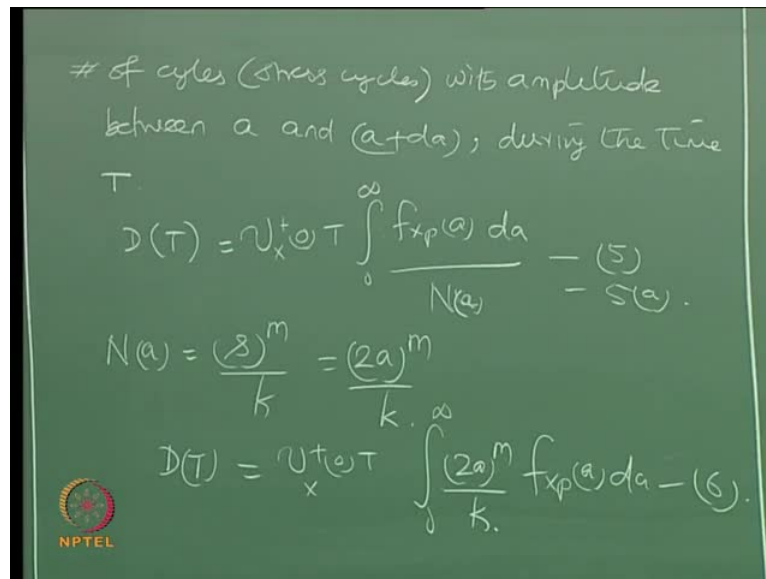 # of cyles (stress cycles) with amplitude
between a and (a+da); during the time
T.
D(T) = ν_x^+(0) T ∫_0^∞ f_xp(a) da / N(a) - (5)
- 5(a).
N(a) = (s)^m / k = (2a)^m / k.
D(T) = ν_x^+(0) T ∫_0^∞ (2a)^m / k. f_xp(a) da - (6).
NPTEL